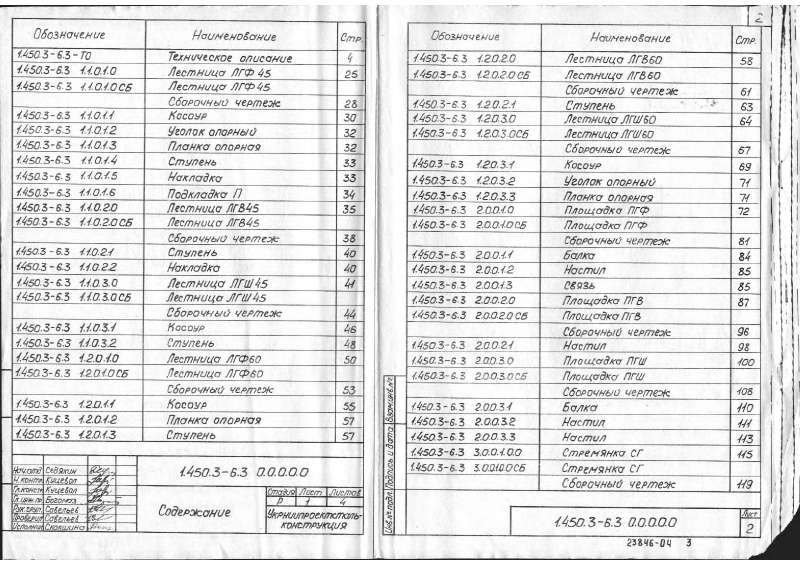 Обозначение Наименование Стр.
1.450.3-6.3-ТО Техническое описание 4
1.450.3-6.3 1.1.0.1.0 Лестница ЛГФ 45 25
1.450.3-6.3 1.1.0.1.0СБ Лестница ЛГФ 45
Сборочный чертеж 28
1.450.3-6.3 1.1.0.1.1 Косоур 30
1.450.3-6.3 1.1.0.1.2 Уголок опорный 32
1.450.3-6.3 1.1.0.1.3 Планка опорная 32
1.450.3-6.3 1.1.0.1.4 Ступень 33
1.450.3-6.3 1.1.0.1.5 Накладка 33
1.450.3-6.3 1.1.0.1.6 Подкладка П 34
1.450.3-6.3 1.1.0.2.0 Лестница ЛГВ45 35
1.450.3-6.3 1.1.0.2.0СБ Лестница ЛГВ45
Сборочный чертеж 38
1.450.3-6.3 1.1.0.2.1 Ступень 40
1.450.3-6.3 1.1.0.2.2 Накладка 40
1.450.3-6.3 1.1.0.3.0 Лестница ЛГШ 45 41
1.450.3-6.3 1.1.0.3.0СБ Лестница ЛГШ 45
Сборочный чертеж 44
1.450.3-6.3 1.1.0.3.1 Косоур 46
1.450.3-6.3 1.1.0.3.2 Ступень 48
1.450.3-6.3 1.2.0.1.0 Лестница ЛГФ60 50
1.450.3-6.3 1.2.0.1.0СБ Лестница ЛГФ60
Сборочный чертеж 53
1.450.3-6.3 1.2.0.1.1 Косоур 55
1.450.3-6.3 1.2.0.1.2 Планка опорная 57
1.450.3-6.3 1.2.0.1.3 Ступень 57
1.450.3-6.3 0.0.0.0.0
Нач.отд Седякин
Н.контр Куцевал
Гл.конст Куцевал
Гл.инж.пр. Боголюб
Рук.груп. Савельев
Проверил Савельев
Исполнил
Содержание
Стадия Лист Листов
Р 1 4
Укрниипроектсталь-
конструкция
2
Обозначение Наименование Стр.
1.450.3-6.3 1.2.0.2.0 Лестница ЛГВ60 58
1.450.3-6.3 1.2.0.2.0СБ Лестница ЛГВ60
Сборочный чертеж 61
1.450.3-6.3 1.2.0.2.1 Ступень 63
1.450.3-6.3 1.2.0.3.0 Лестница ЛГШ60 64
1.450.3-6.3 1.2.0.3.0СБ Лестница ЛГШ60
Сборочный чертеж 67
1.450.3-6.3 1.2.0.3.1 Косоур 69
1.450.3-6.3 1.2.0.3.2 Уголок опорный 71
1.450.3-6.3 1.2.0.3.3 Планка опорная 71
1.450.3-6.3 2.0.0.1.0 Площадка ПГФ 72
1.450.3-6.3 2.0.0.1.0СБ Площадка ПГФ
Сборочный чертеж 81
1.450.3-6.3 2.0.0.1.1 Балка 84
1.450.3-6.3 2.0.0.1.2 Настил 85
1.450.3-6.3 2.0.0.1.3 Связь 85
1.450.3-6.3 2.0.0.2.0 Площадка ПГВ 87
1.450.3-6.3 2.0.0.2.0СБ Площадка ПГВ
Сборочный чертеж 96
1.450.3-6.3 2.0.0.2.1 Настил 98
1.450.3-6.3 2.0.0.3.0 Площадка ПГШ 100
1.450.3-6.3 2.0.0.3.0СБ Площадка ПГШ
Сборочный чертеж 108
1.450.3-6.3 2.0.0.3.1 Балка 110
1.450.3-6.3 2.0.0.3.2 Настил 111
1.450.3-6.3 2.0.0.3.3 Настил 113
1.450.3-6.3 3.0.0.1.0.0 Стремянка СГ 115
1.450.3-6.3 3.0.0.1.0.0СБ Стремянка СГ
Сборочный чертеж 119
Инв.№ подл. Подпись и дата Взам.инв.№
1.450.3-6.3 0.0.0.0.0
Лист
2
23846-04 3